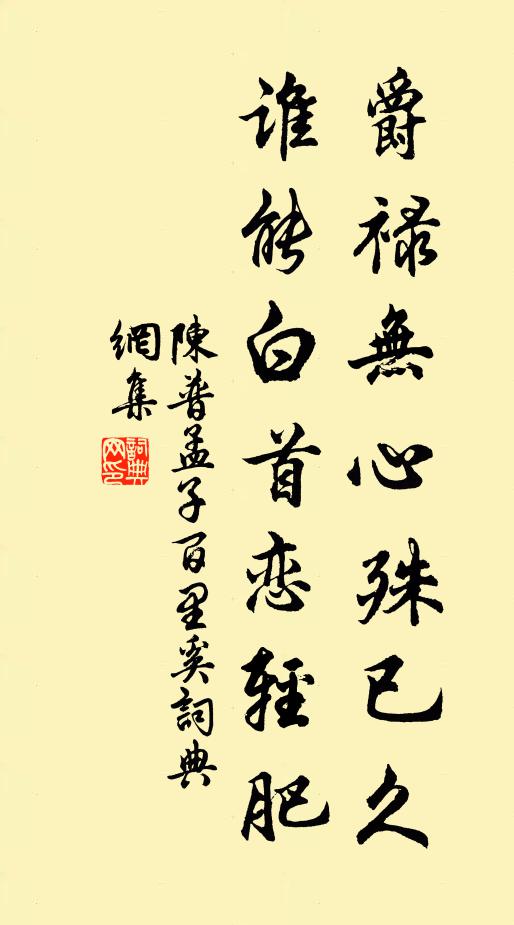 爵禄無心殊已久
誰能白首恋輕肥
陳普孟子百里奚詞典
網集
詞典
网印